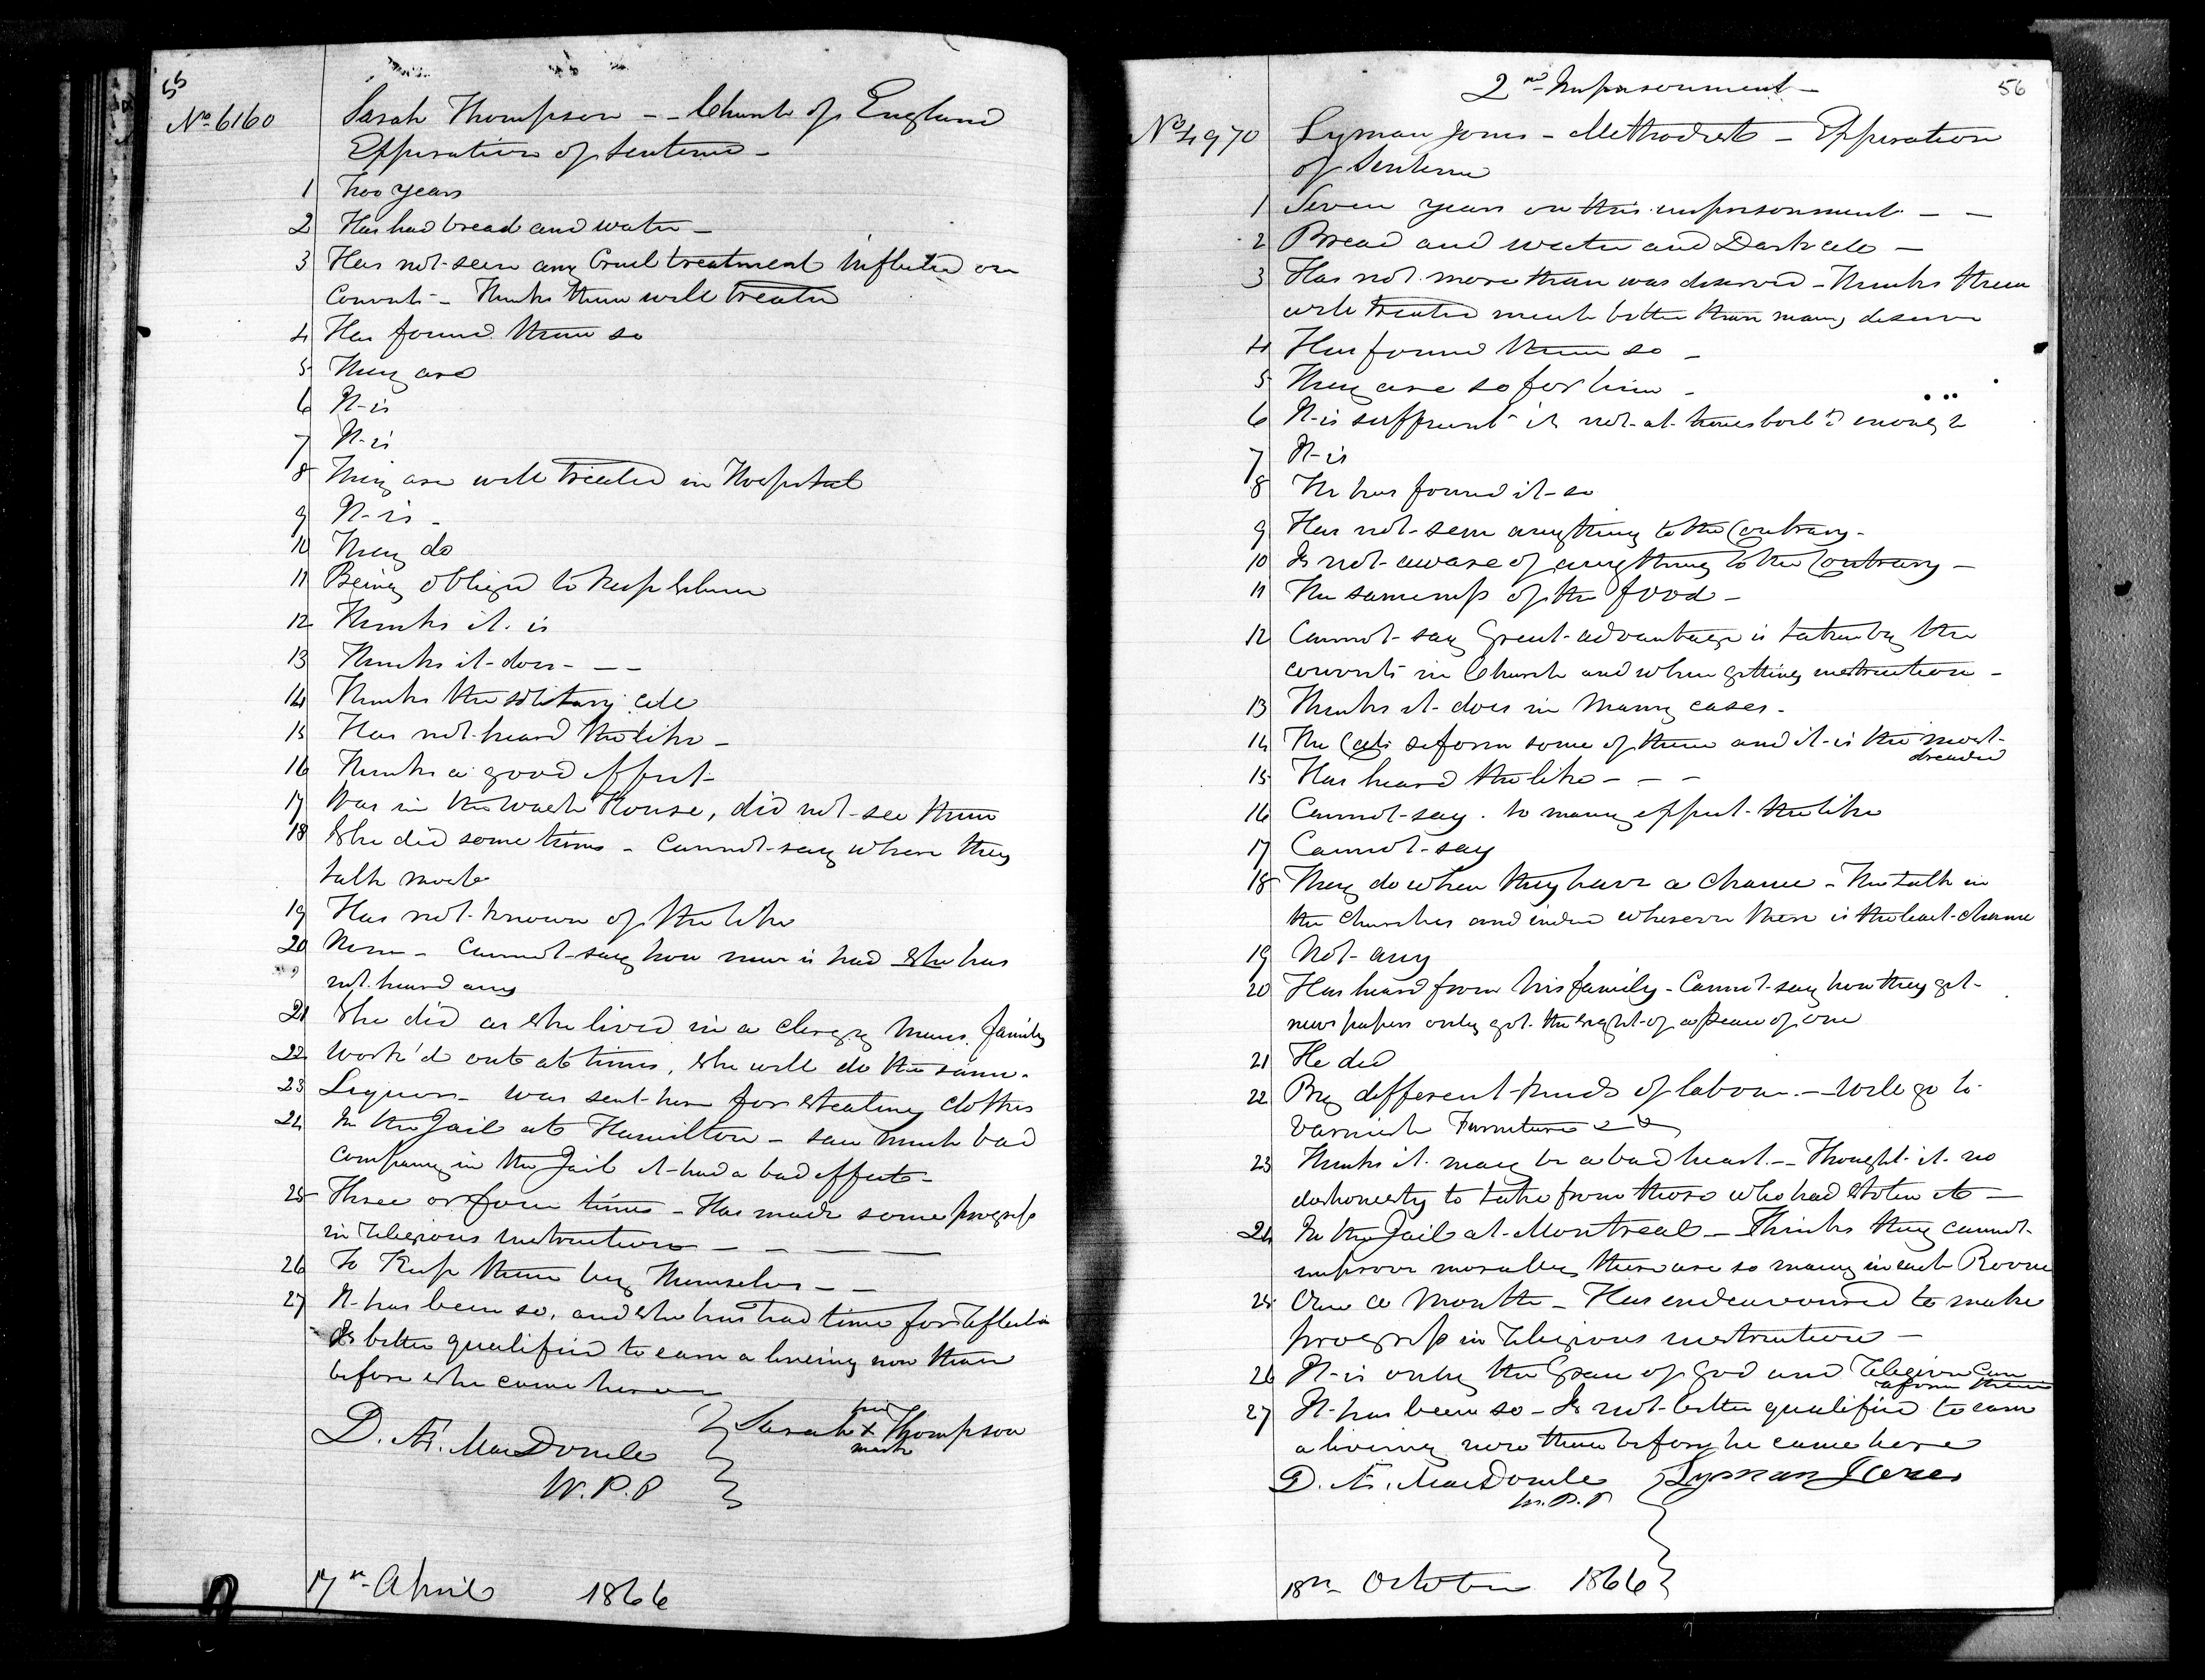 55
No 6160
Sarah Thompson -- Church of England
Expiration of Sentence -
1 Two years
2 Has had bread and water -
3 Has not seen any Cruel treatment inflicted on
Convicts - Thinks them well treated
4 Has found them so
5 They are
6 It is
7 It is
8 They are well treated in Hospital
9 It is -
10 They do
11 Being obliged to keep Silence
12 Thinks it is
13 Thinks it does - - -
14 Thinks the solitary cell
15 Has not heard the like -
16 Thinks a good effect -
17 Was in the wash House, did not see them
18 She did some times - Cannot say where they
talk most
19 Has not known of the like
20 None - Cannot say how news is had She has
not heard any
21 She did as she lived in a clergy mans family
22 Work'd out at times, She will do the same.
23 Liquor - was sent here for Stealing clothes
24 In the Jail at Hamilton - saw much bad
company in the Jail it had a bad effect -
25 Three or four times - Has made some progress
in religious instruction - - - -
26 To Keep them by Themselves - -
27 It has been so, and she has had time for reflection
Is better qualified to earn a living now than
before she came here
D. Æ. MacDonell
W.P.P
Sarah X Thompson
her
mark
17th April 1866
56
2nd Imprisonment -
No 4970
Lyman Jones - Methodist - Expiration
of Sentence
1 Seven years on this imprisonment - -
2 Bread and water and Dark cell -
3 Has not more than was deserved - Thinks them
well treated much better than many deserve
4 Has found them so -
5 They are so for him -
6 It is sufficient it is not at times boil'd enough
7 It is
8 He has found it so
9 Has not seen anything to the Contrary -
10 Is not aware of anything to the Contrary -
11 The sameness of the food -
12 Cannot say Great advantage is taken by the
convicts in Church and when getting instruction -
13 Thinks it does in Many cases -
14 The Cells reform some of them and it is the most
dreaded
15 Has heard the like - - -
16 Cannot say. to many effect the like
17 Cannot say
18 They do when they have a chance - The talk in
the Churches and indeed wherever there is the least chance
19 Not any
20 Has heard from his family - Cannot say how they get
news papers only got the sight of a peace of one
21 He did
22 By different kinds of labour - will go to
varnish Furniture
23 Thinks it may be a bad heart - Thought it no
dishonesty to take from those who had stolen it -
24 In the Jail at Montreal - Thinks they cannot
improve morally there are so many in each Room
25 Once a Month - Has endeavoured to make
progress in religious instruction -
26 It is only the Grace of God and religion can
reform them
27 It has been so - Is not better qualified to earn
a living now than before he came here
D. Æ. MacDonell
W.P.P
Lyman Jones
18th October 1866